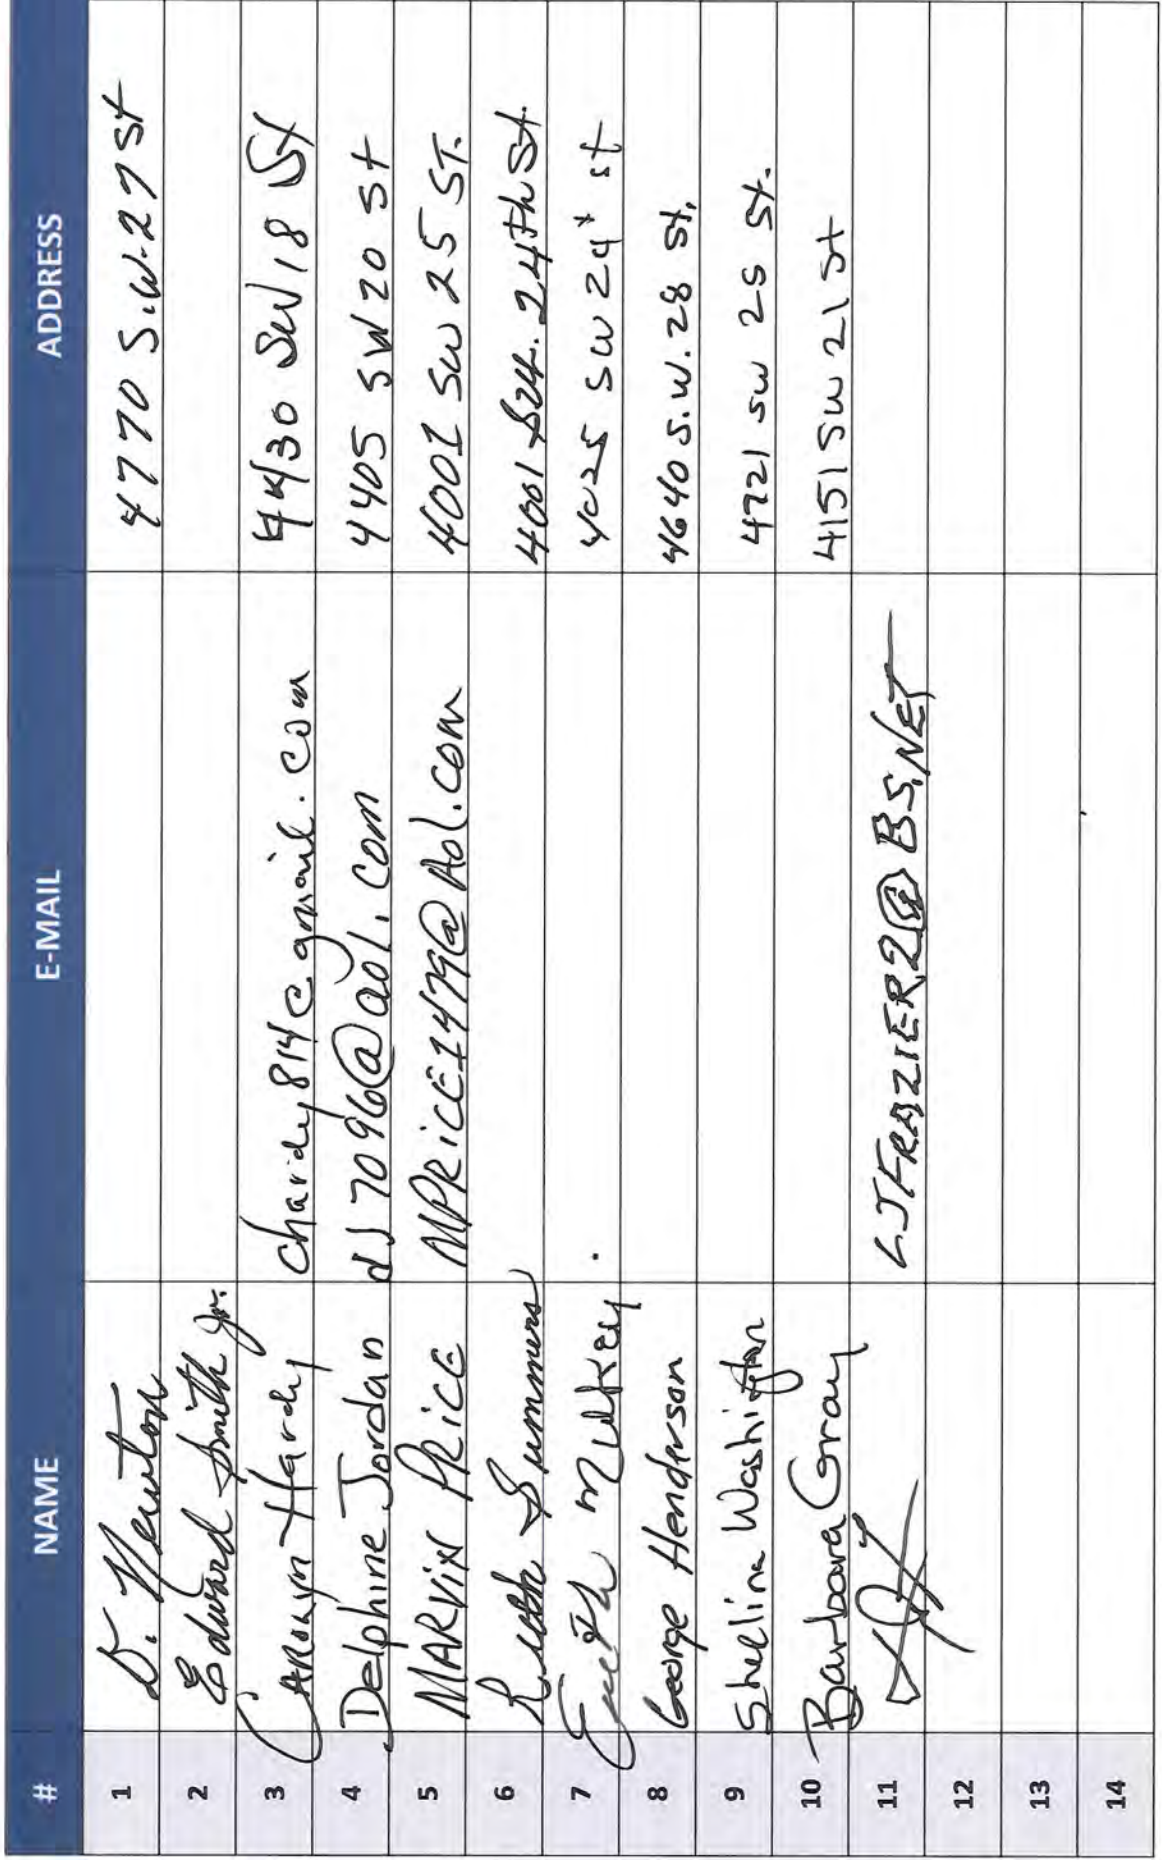 # NAME E-MAIL ADDRESS
1 D. Newton 4770 S.W. 27 St
2 Edward Smith Jr.
3 Carolyn Hardy chardy814@gmail.com 4430 SW 18 St
4 Delphine Jordan dJ7096@aol.com 4405 SW 20 St
5 MARVIN PRiCE MPRiCE1479@Aol.com 4001 SW 25 ST.
6 Ruth Summers 4001 S.W. 24th St.
7 Mulkey 4025 SW 24 st
8 George Henderson 4640 S.W. 28 St.
9 Shellina Washington 4721 SW 25 St.
10 Barbara Gray 4151 SW 21 St
11 LJFRAZIER2@BS.NET
12
13
14